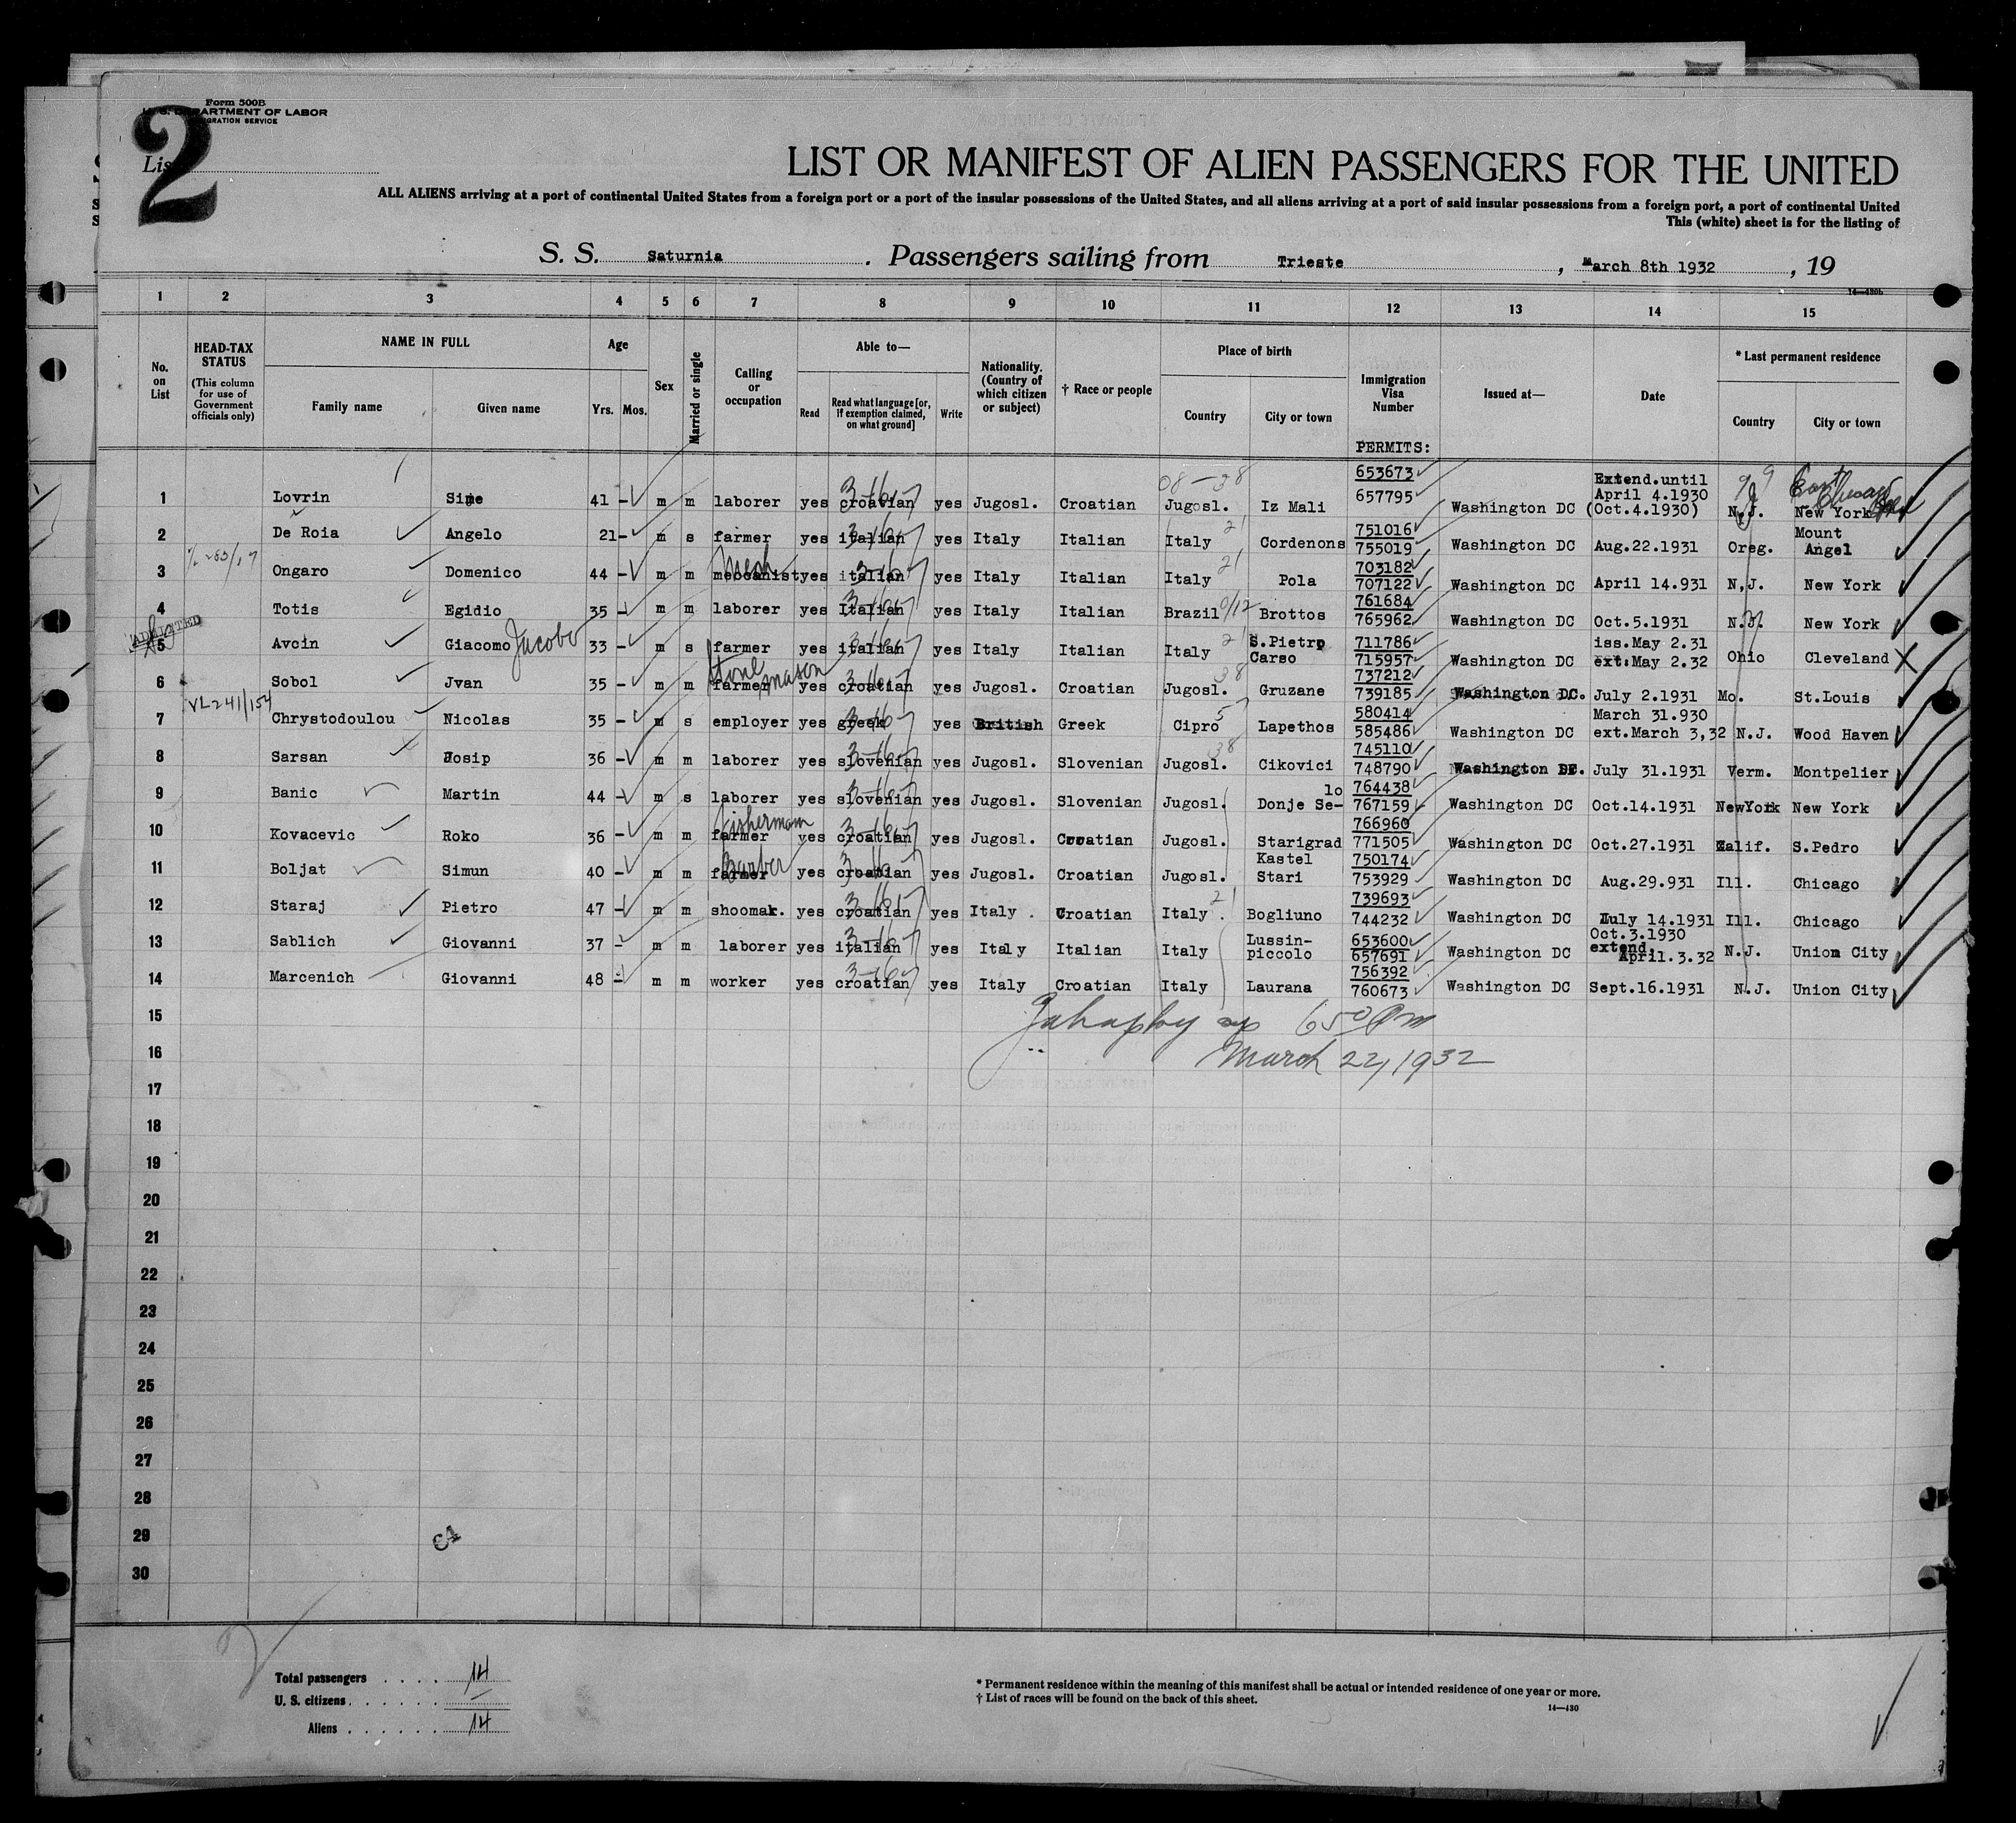 Form 500B
U. S. DEPARTMENT OF LABOR
IMMIGRATION SERVICE
2
List
LIST OR MANIFEST OF ALIEN PASSENGERS FOR THE UNITED
ALL ALIENS arriving at a port of continental United States from a foreign port or a port of the insular possessions of the United States, and all aliens arriving at a port of said insular possessions from a foreign port, a port of continental United
This (white) sheet is for the listing of
S. S. Saturnia . Passengers sailing from Trieste , March 8th 1932 , 19
14—430b
1 2 3 4 5 6 7 8 9 10 11 12 13 14 15
No. on List
HEAD-TAX STATUS (This column for use of Government officials only)
NAME IN FULL
Family name Given name
Age
Yrs. Mos.
Sex
Married or single
Calling or occupation
Able to—
Read Read what language [or, if exemption claimed, on what ground] Write
Nationality. (Country of which citizen or subject)
† Race or people
Place of birth
Country City or town
Immigration Visa Number
PERMITS:
Issued at—
Date
* Last permanent residence
Country City or town
1 Lovrin Sime 41 - m m laborer yes croatian yes Jugosl. Croatian 08-38 Jugosl. Iz Mali 653673 657795 Washington DC Extend.until April 4.1930 (Oct.4.1930) N.J. New York
2 De Roia Angelo 21- m s farmer yes italian yes Italy Italian Italy 21 Cordenons 751016 755019 Washington DC Aug.22.1931 Oreg. Mount Angel
3 Ongaro Domenico 44 - m m meccanist Mech yes italian yes Italy Italian Italy 21 Pola 703182 707122 Washington DC April 14.931 N,J. New York
4 Totis Egidio 35 - m m laborer yes Italian yes Italy Italian Brazil Brottos 761684 765962 Washington DC Oct.5.1931 N.J. New York
ADMITTED
5 Avcin Giacomo Jacobo 33 - m s farmer yes italian yes Italy Italian Italy 21 S.Pietro Carso 711786 715957 Washington DC iss.May 2.31 ext.May 2.32 Ohio Cleveland X
6 Sobol Jvan 35 - m m farmer Stone mason yes croatian yes Jugosl. Croatian Jugosl. 38 Gruzane 737212 739185 Washington DC. July 2.1931 Mo. St.Louis
VL241/154
7 Chrystodoulou Nicolas 35 - m s employer yes greek yes British Greek Cipro 57 Lapethos 580414 585486 Washington DC March 31.930 ext.March 3,32 N.J. Wood Haven
8 Sarsan Josip 36 - m m laborer yes slovenian yes Jugosl. Slovenian Jugosl. 38 Cikovici 745110 748790 Washington DC. July 31.1931 Verm. Montpelier
9 Banic Martin 44 - m s laborer yes slovenian yes Jugosl. Slovenian Jugosl. Donje Se- lo 764438 767159 Washington DC Oct.14.1931 NewYork New York
10 Kovacevic Roko 36 - m m farmer fishermann yes croatian yes Jugosl. Croatian Jugosl. Starigrad 766960 771505 Washington DC Oct.27.1931 Calif. S.Pedro
11 Boljat Simun 40 - m m farmer Barber yes croatian yes Jugosl. Croatian Jugosl. Kastel Stari 750174 753929 Washington DC Aug.29.931 Ill. Chicago
12 Staraj Pietro 47 - m m shoomak. yes croatian yes Italy . Croatian Italy . 21 Bogliuno 739693 744232 Washington DC July 14.1931 Ill. Chicago
13 Sablich Giovanni 37 - m m laborer yes italian yes Italy Italian Italy Lussin- piccolo 653600 657691 Washington DC Oct.3.1930 extend. April.3.32 N.J. Union City
14 Marcenich Giovanni 48 - m m worker yes croatian yes Italy Croatian Italy Laurana 756392 760673 Washington DC Sept.16.1931 N.J. Union City
15 650 Pm
16 March 22, 1932
17
18
19
20
21
22
23
24
25
26
27
28
29
30
Total passengers . . . . 14
U. S. citizens . . . . . . —
Aliens . . . . . . 14
* Permanent residence within the meaning of this manifest shall be actual or intended residence of one year or more.
† List of races will be found on the back of this sheet.
14—430